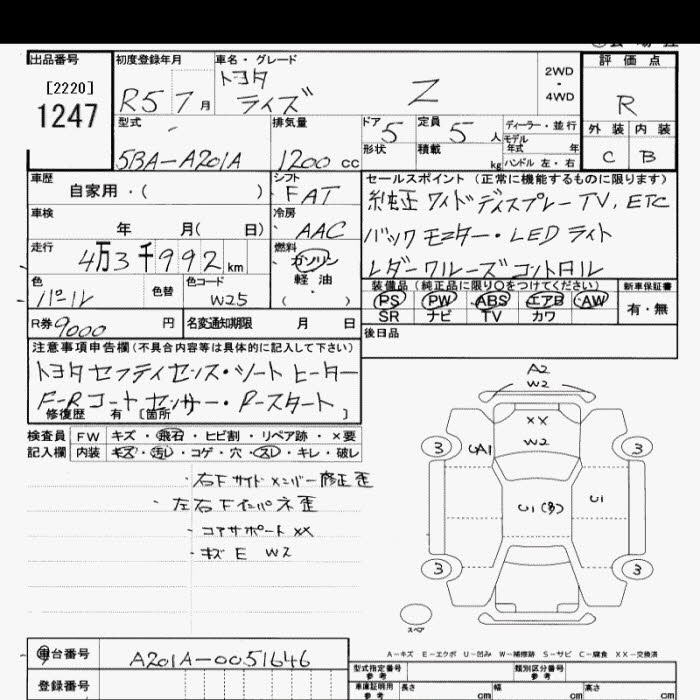 出品番号
[2220]
1247
初度登録年月
R5 7月
車名・グレード
トヨタ
ライズ
Z
2WD
・
4WD
評価点
R
外装 内装
C B
型式
5BA-A201A
排気量
1200cc
ドア
5
定員
5人
形状
積載
kg
ディーラー・並行
モデル
年式 年
ハンドル 左・右
車歴
自家用・( )
シフト
FAT
車検
年 月( 日)
冷房
AAC
走行
4万3千992km
燃料
ガソリン
軽油
( )
色
パール
色替
色コード
W25
R券 9000 円
名変通知期限 月 日
セールスポイント(正常に機能するものに限ります)
純正ワイドディスプレーTV, ETC
バックモニター・LEDライト
レダークルーズコントロール
装備品(純正品に限り○をつけてください)
PS PW ABS エアB AW
SR ナビ TV カワ
新車保証書
有・無
後日品
注意事項申告欄(不具合内容等は具体的に記入して下さい)
トヨタセフティセンス・シートヒーター
F-Rコーナーセンサー・Pースタート
修復歴 有[箇所 ]
検査員 FW キズ・飛石・ヒビ割・リペア跡・×要
記入欄 内装 キズ・汚レ・コゲ・穴・スレ・キレ・破レ
・右下サイドメンバー修正歪
・左右下インパネ歪
・コアサポート XX
・キズ E W2
A2
W2
XX
W2
3 UA1 3
U1(多) U1
3 3
スペア
A-キズ E-エクボ U-凹み W-補修跡 S-サビ C-腐食 XX-交換済
車台番号
A201A-0051646
登録番号
型式指定番号
参考
類別区分番号
参考
車庫証明用
参考
長さ cm 幅 cm 高さ cm